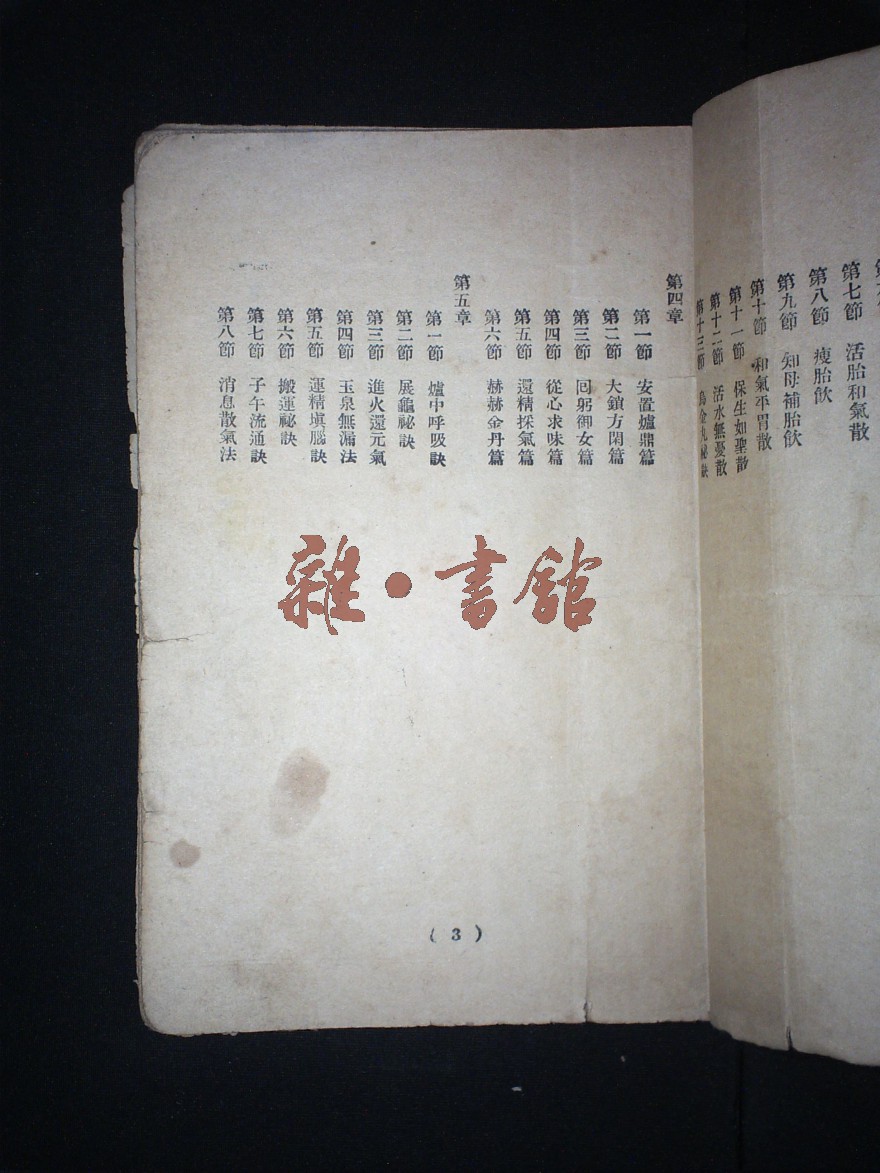 第七節 活胎和氣散
第八節 瘦胎飲
第九節 知母補胎飲
第十節 和氣平胃散
第十一節 保生如聖散
第十二節 活水無憂散
第十三節 烏金丸祕訣
第四章
第一節 安置爐鼎篇
第二節 大鎖方閑篇
第三節 囘躬御女篇
第四節 從心求味篇
第五節 還精採氣篇
第六節 赫赫金丹篇
第五章
第一節 爐中呼吸訣
第二節 展龜祕訣
第三節 進火還元氣
第四節 玉泉無漏法
第五節 運精塡腦訣
第六節 搬運祕訣
第七節 子午流通訣
第八節 消息散氣法
雜·書館
( 3 )